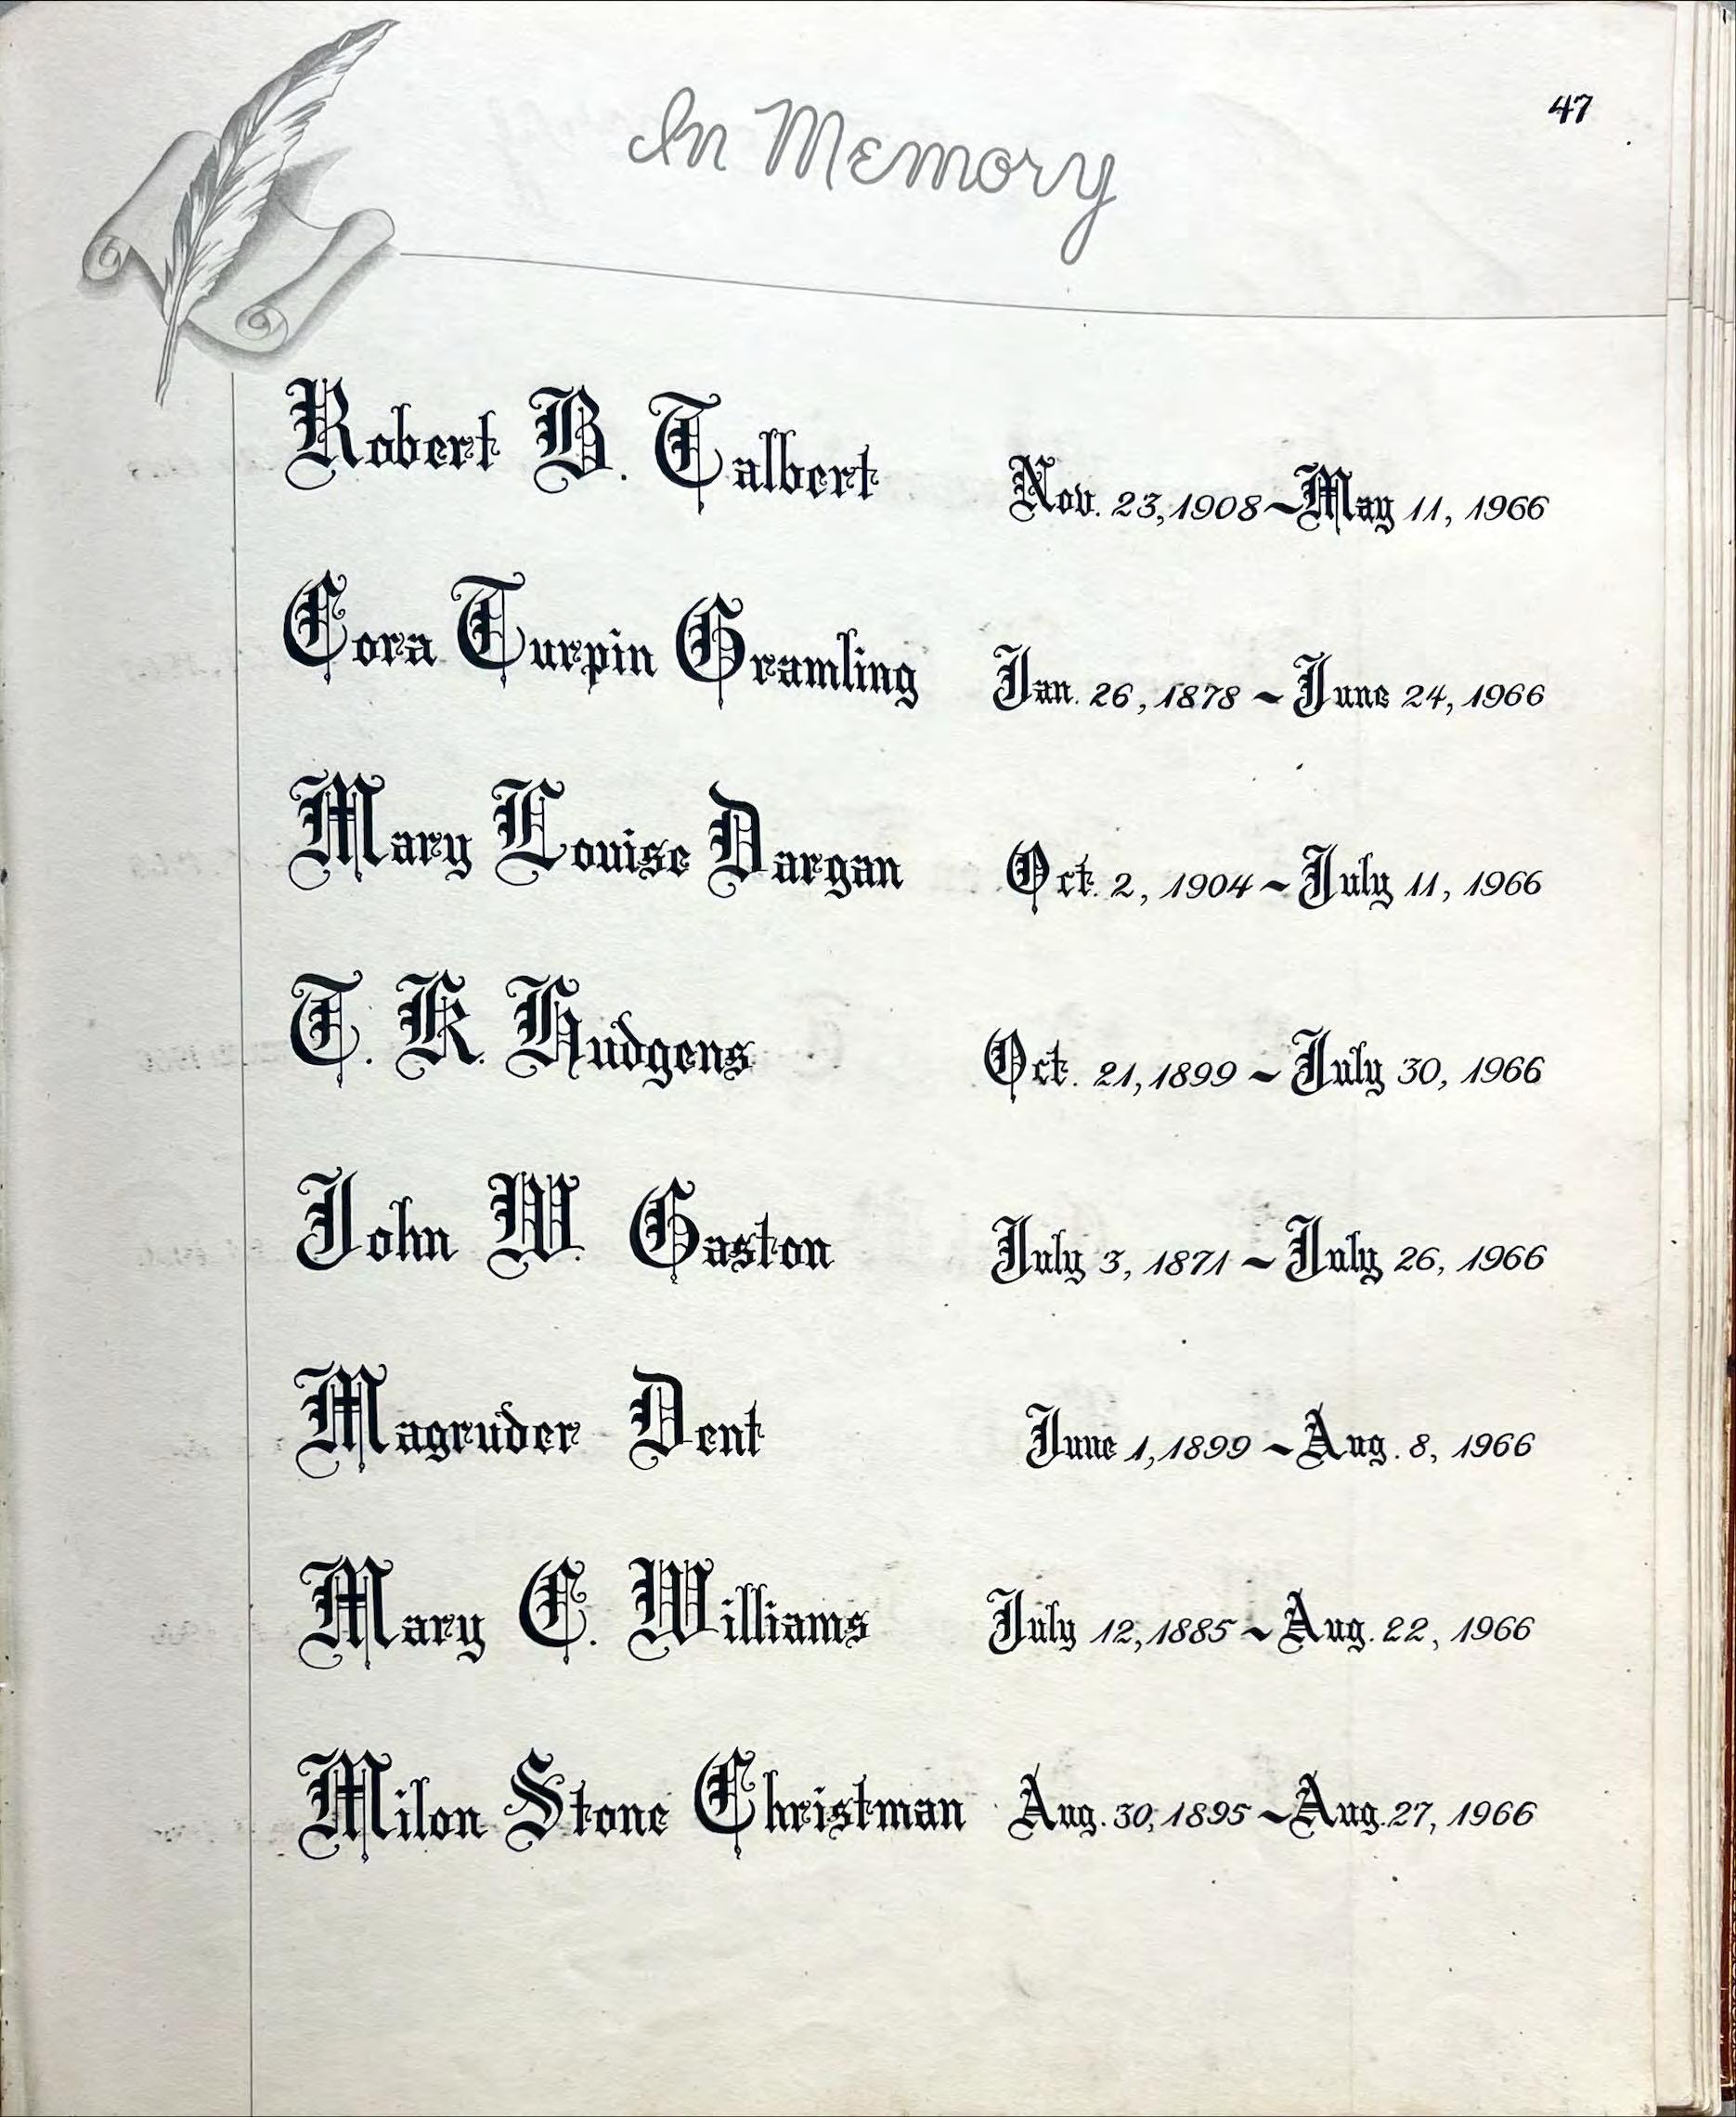 47
In Memory
Robert B. Talbert Nov. 23, 1908 ~ May 11, 1966
Cora Turpin Gramling Jan. 26, 1878 ~ June 24, 1966
Mary Louise Dargan Oct. 2, 1904 ~ July 11, 1966
T. K. Hudgens Oct. 21, 1899 ~ July 30, 1966
John W. Gaston July 3, 1871 ~ July 26, 1966
Magruder Dent June 1, 1899 ~ Aug. 8, 1966
Mary C. Williams July 12, 1885 ~ Aug. 22, 1966
Milon Stone Christman Aug. 30, 1895 ~ Aug. 27, 1966